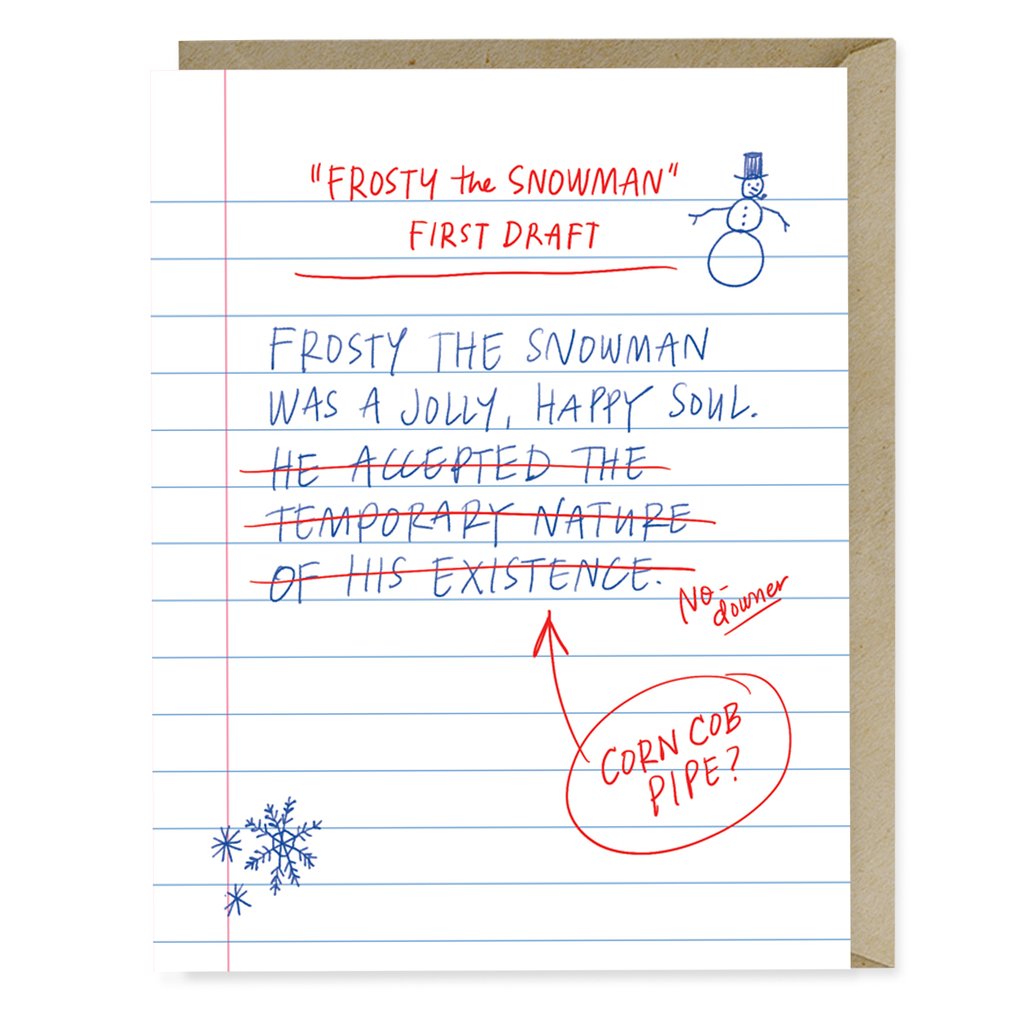 "FROSTY the SNOWMAN"
FIRST DRAFT
FROSTY THE SNOWMAN
WAS A JOLLY, HAPPY SOUL.
HE ACCEPTED THE
TEMPORARY NATURE
OF HIS EXISTENCE.
NO-
downer
CORN COB
PIPE?